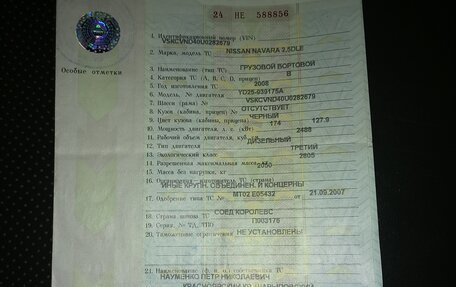 24 НЕ 588856
1. Идентификационный номер (VIN)
VSKCVND40U0282679
2. Марка, модель ТС NISSAN NAVARA 2.5DLE
3. Наименование (тип ТС) ГРУЗОВОЙ БОРТОВОЙ
4. Категория ТС (А, В, С, D, прицеп) В
5. Год изготовления ТС 2008
6. Модель, № двигателя YD25-939175A
7. Шасси (рама) № VSKCVND40U0282679
8. Кузов (кабина, прицеп) № ОТСУТСТВУЕТ
9. Цвет кузова (кабины, прицепа) ЧЕРНЫЙ
10. Мощность двигателя, л. с. (кВт) 174 127.9
11. Рабочий объем двигателя, куб. 2488
12. Тип двигателя ДИЗЕЛЬНЫЙ
13. Экологический класс ТРЕТИЙ
14. Разрешенная максимальная масса, кг 2805
15. Масса без нагрузки, кг
16. Организация - изготовитель ТС (страна)
ИНЫЕ КРУПН. ОБЪЕДИНЕН. И КОНЦЕРНЫ
17. Одобрение типа ТС № МТ02 Е05432 от 21.09.2007
18. Страна вывоза ТС СОЕД КОРОЛЕВС
19. Серия, № ТД, ТПО
20. Таможенные ограничения НЕ УСТАНОВЛЕНЫ
21. Наименование (ф. и. о.) собственника ТС
НАУМЕНКО ПЕТР НИКОЛАЕВИЧ
Особые отметки